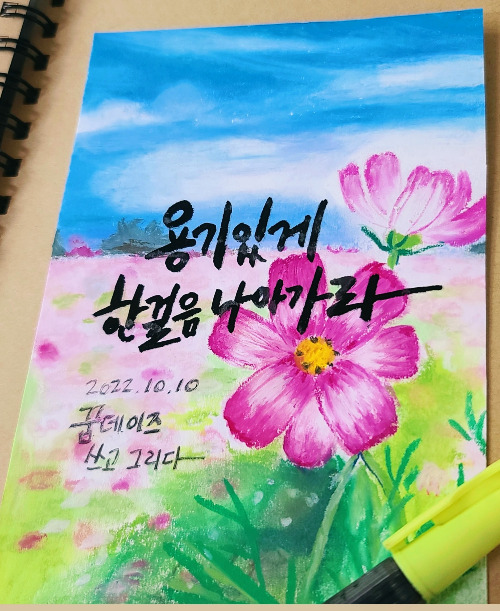 용기있게
한걸음 나아가라
2022.10.10
꿈데이즈
쓰고 그리다